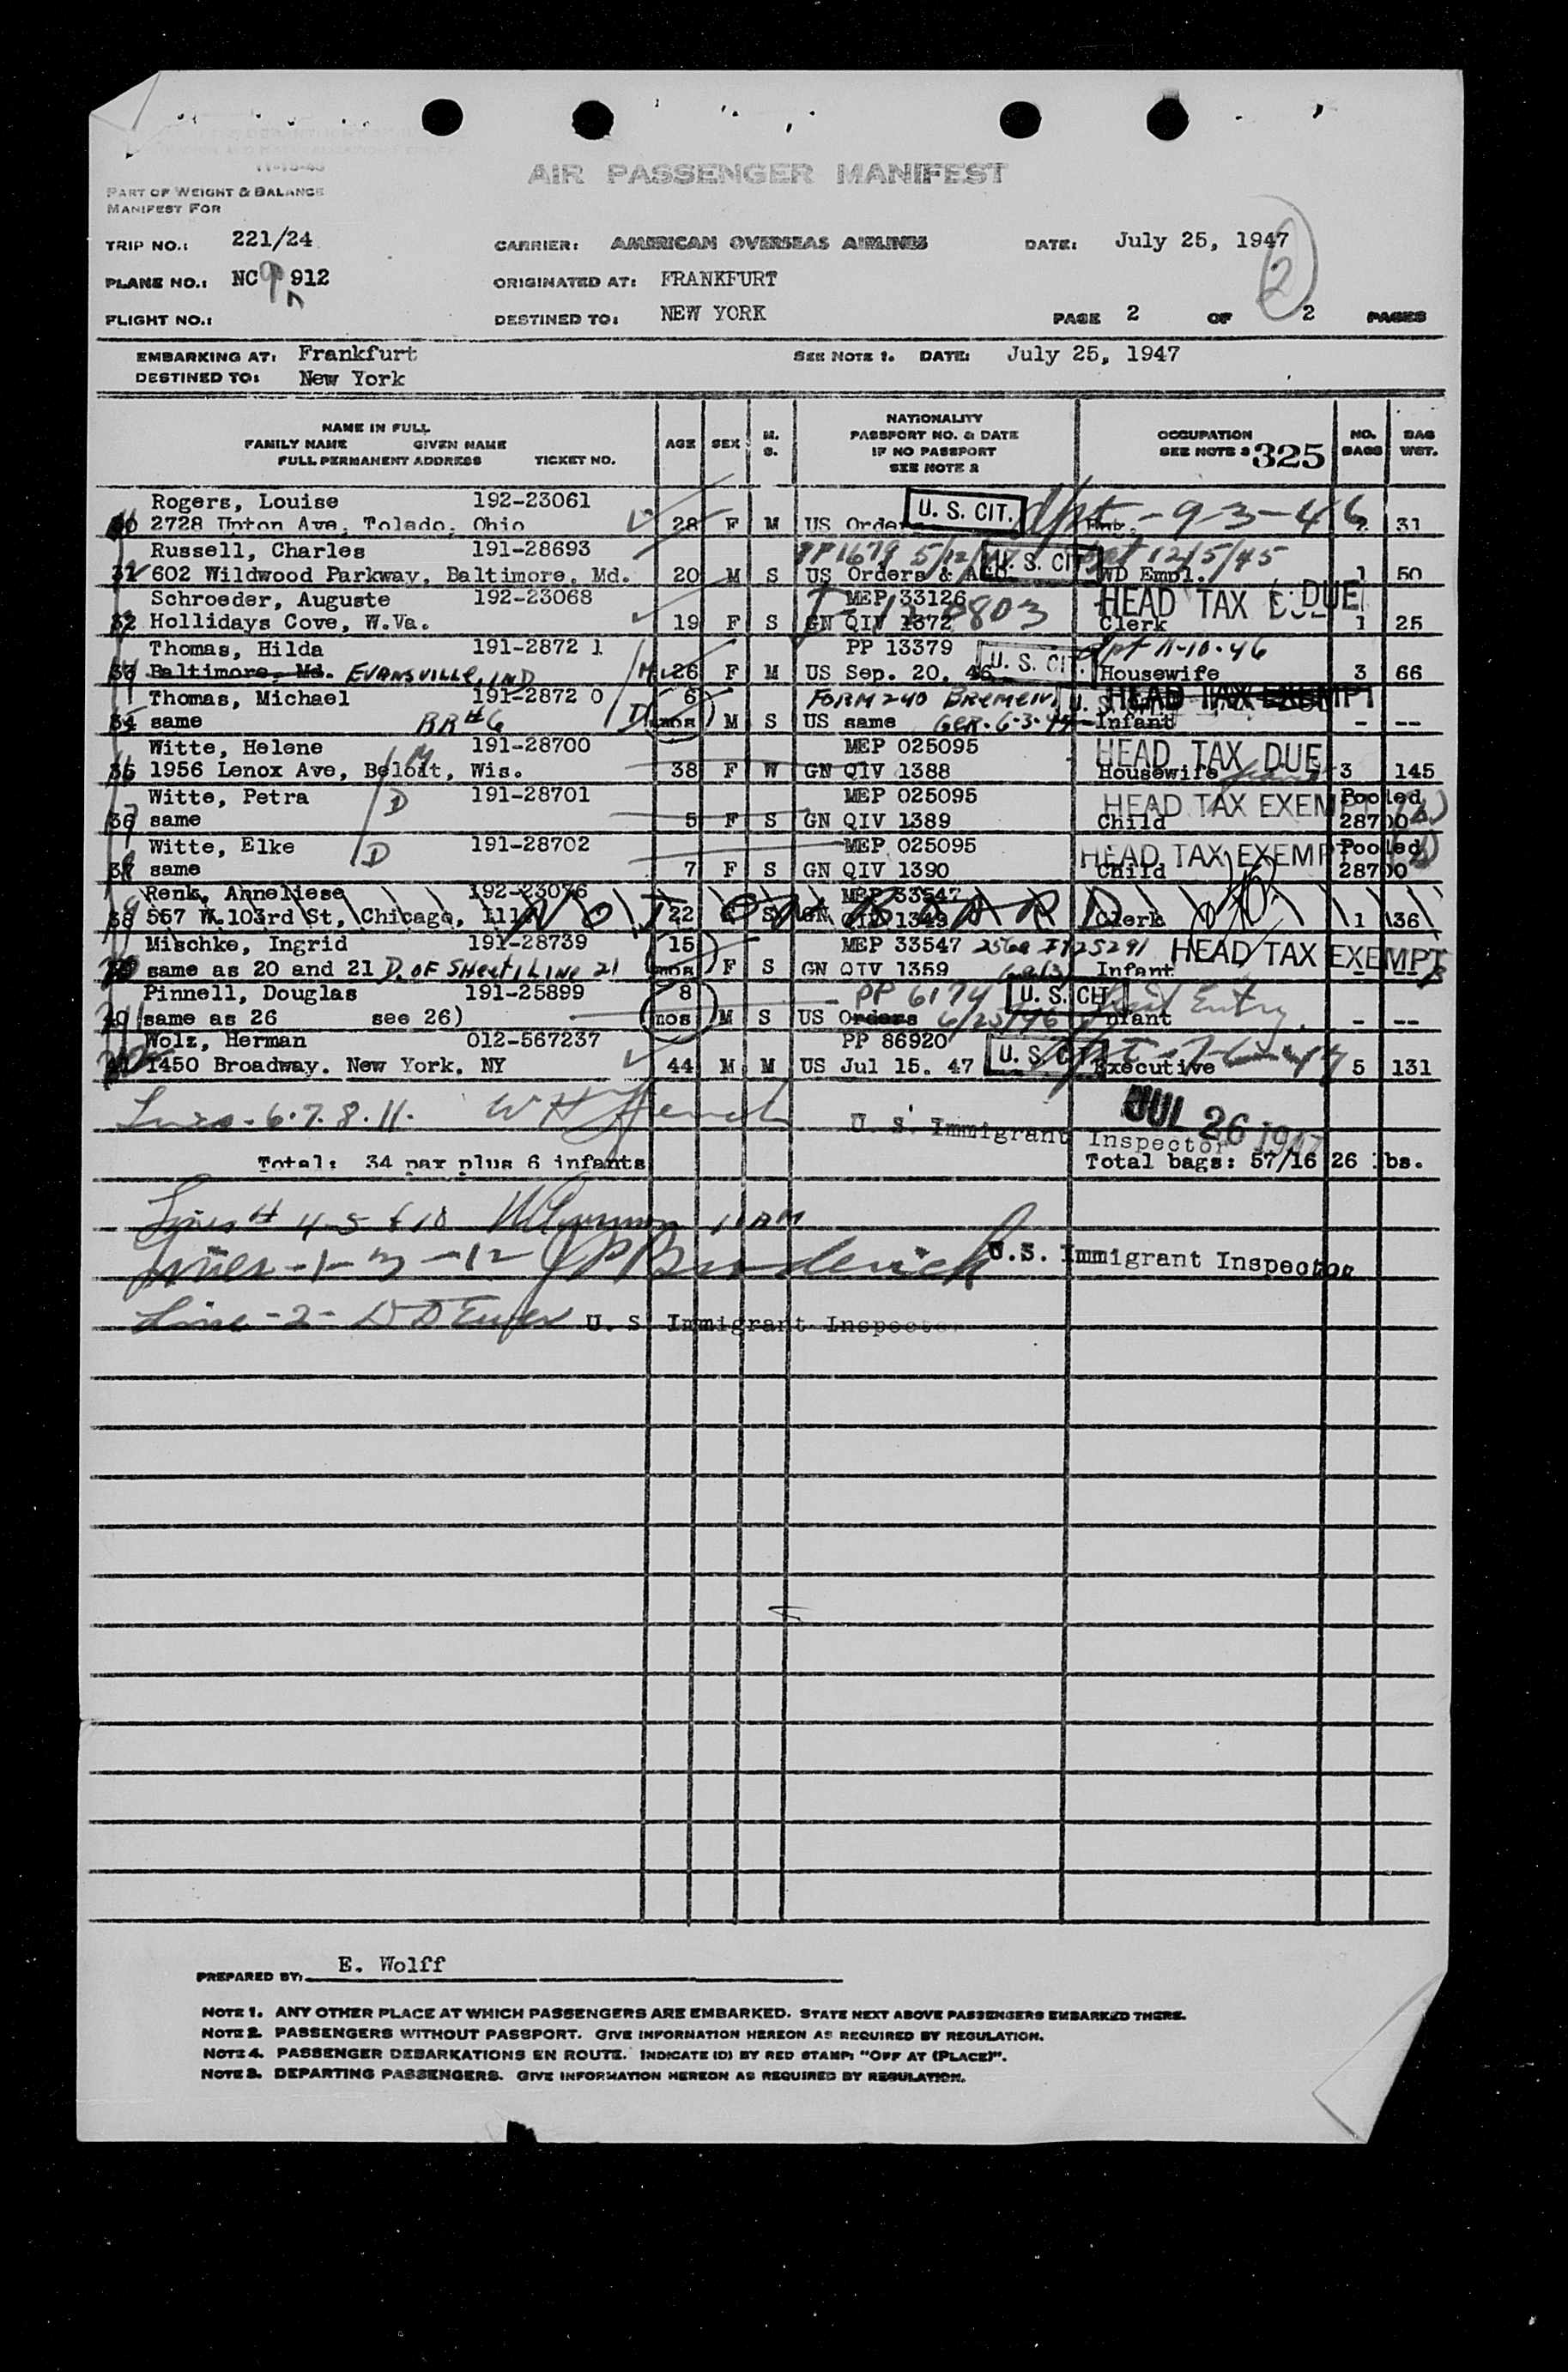 AIR PASSENGER MANIFEST
PART OF WEIGHT & BALANCE
MANIFEST FOR
TRIP NO.: 221/24 CARRIER: AMERICAN OVERSEAS AIRLINES DATE: July 25, 1947
PLANE NO.: NC 912 ORIGINATED AT: FRANKFURT 2
FLIGHT NO.: DESTINED TO: NEW YORK PAGE 2 OF 2 PAGES
EMBARKING AT: Frankfurt SEE NOTE 1. DATE: July 25, 1947
DESTINED TO: New York
NAME IN FULL
FAMILY NAME GIVEN NAME
FULL PERMANENT ADDRESS TICKET NO.
AGE SEX M. S.
NATIONALITY
PASSPORT NO. & DATE
IF NO PASSPORT
SEE NOTE 2
OCCUPATION
SEE NOTE 3 325
NO. BAGS
BAG WGT.
Rogers, Louise 192-23061 U. S. CIT. dpt-9-3-46
30 2728 Upton Ave, Toledo, Ohio 28 F M US Orders Ent. 2 31
Russell, Charles 191-28693 PP1679 5/12/ U. S. CIT 12/5/45
31 602 Wildwood Parkway, Baltimore, Md. 20 M S US Orders & WD Empl. 1 50
Schroeder, Auguste 192-23068 MEP 33126 HEAD TAX DUE
32 Hollidays Cove, W.Va. 19 F S GN QIV 1372 803 Clerk 1 25
Thomas, Hilda 191-2872 1 PP 13379 U. S. CIT. dpt 11-10-46
33 Baltimore, Md. EVANSVILLE, IND 26 F M US Sep. 20, 46 Housewife 3 66
Thomas, Michael 191-2872 0 6 FORM 240 BREMEN, HEAD TAX EXEMPT
34 same RR#6 D mos M S US same GER. 6-3-47 Infant - --
Witte, Helene 191-28700 MEP 025095 HEAD TAX DUE
35 1956 Lenox Ave, Beloit, Wis. M 38 F W GN QIV 1388 Housewife 3 145
Witte, Petra 191-28701 MEP 025095 HEAD TAX EXEMPT Pooled
36 same D 5 F S GN QIV 1389 Child 28700
Witte, Elke 191-28702 MEP 025095 HEAD TAX EXEMPT Pooled
37 same D 7 F S GN QIV 1390 Child 28700
Renk, Anneliese 192-23076 MEP 33547
38 557 W.103rd St, Chicago, Ill NOT ON BOARD 22 S GN QIV 1349 Clerk 1 36
Mischke, Ingrid 191-28739 15 MEP 33547 HEAD TAX EXEMPT
same as 20 and 21 D. OF SHEET 1 LINE 21 mos F S GN QIV 1359 Infant - --
Pinnell, Douglas 191-25899 8 PP 6174 U. S. CIT Entry
40 same as 26 see 26) mos M S US Orders 6/25/46 Infant - --
Wolz, Herman 012-567237 PP 86920 U. S. CIT
41 1450 Broadway. New York, NY 44 M M US Jul 15. 47 Executive 5 131
Lines - 6.7.8.11. U. S. Immigrant Inspector JUL 26 1947
Total: 34 pax plus 6 infants Total bags: 57/1626 lbs.
Lines # 4-5 & 10
Lines -1-3-12 J P Broderick U.S. Immigrant Inspector
Line -2- U. S. Immigrant Inspector
PREPARED BY: E. Wolff
NOTE 1. ANY OTHER PLACE AT WHICH PASSENGERS ARE EMBARKED. STATE NEXT ABOVE PASSENGERS EMBARKED THERE.
NOTE 2. PASSENGERS WITHOUT PASSPORT. GIVE INFORMATION HEREON AS REQUIRED BY REGULATION.
NOTE 4. PASSENGER DEBARKATIONS EN ROUTE. INDICATE (D) BY RED STAMP: "OFF AT (PLACE)".
NOTE 3. DEPARTING PASSENGERS. GIVE INFORMATION HEREON AS REQUIRED BY REGULATION.